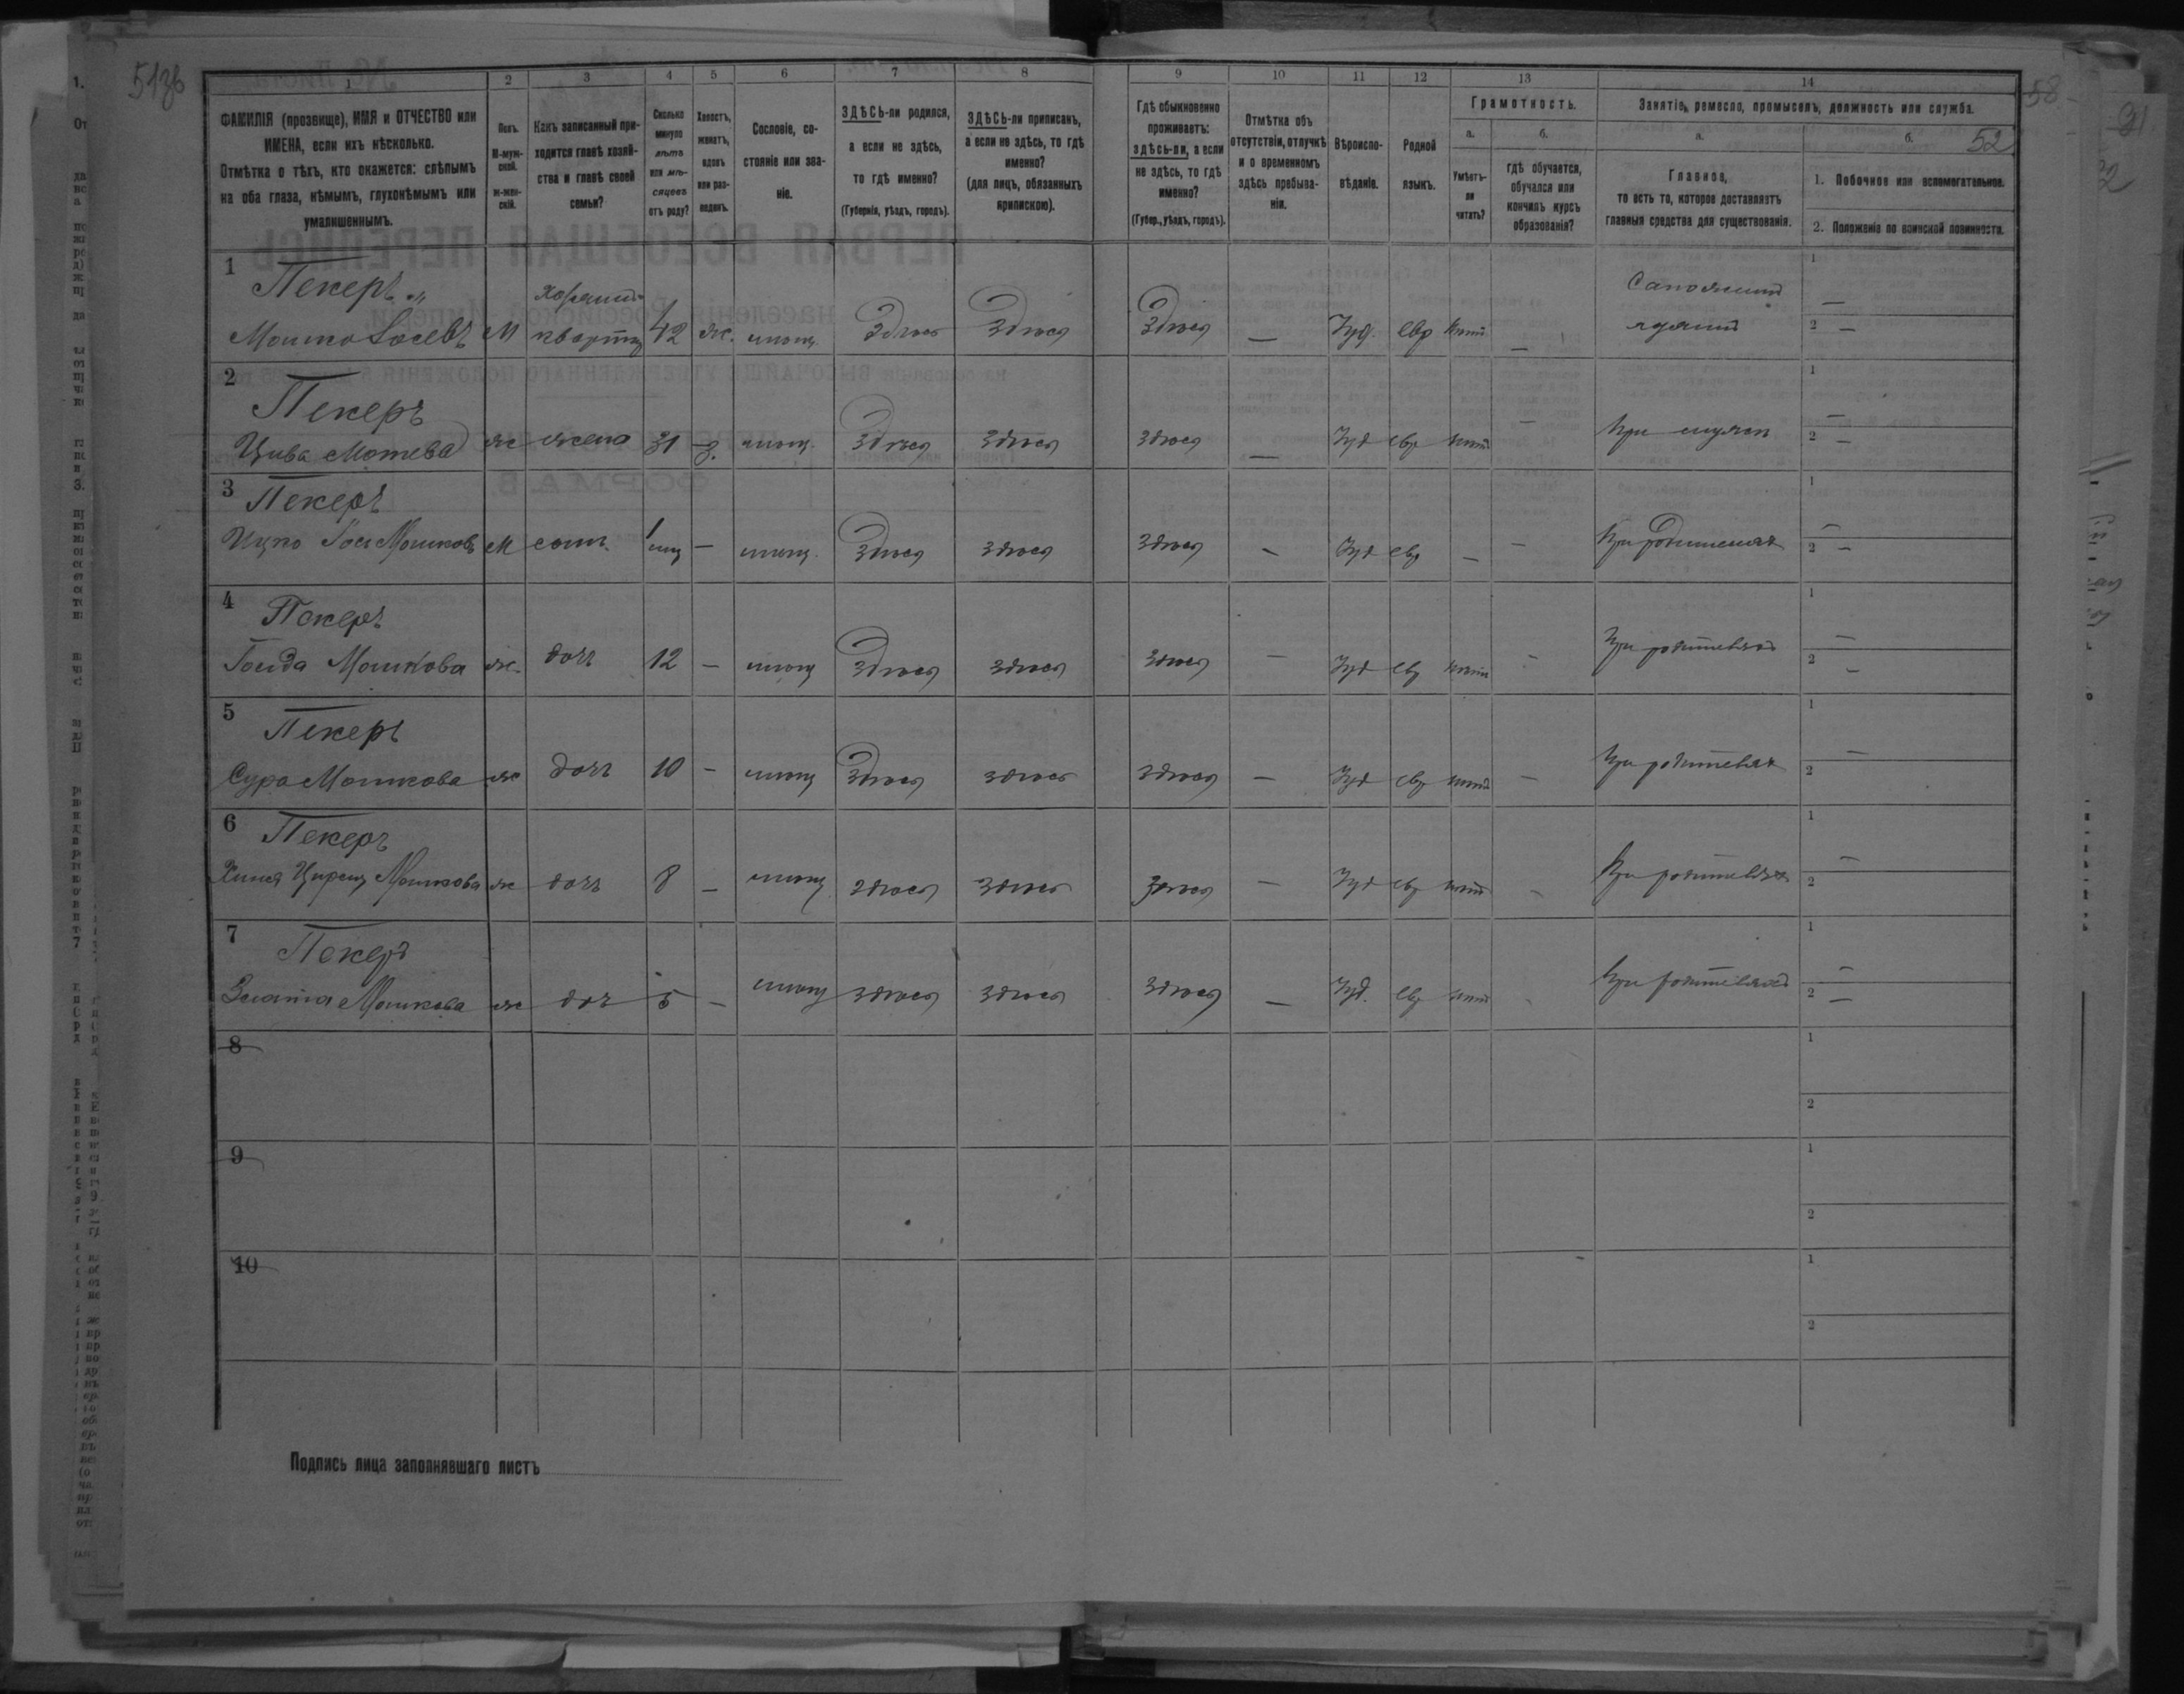 513об
58
52
1 2 3 4 5 6 7 8 9 10 11 12 13 14
ФАМИЛІЯ (прозвище), ИМЯ и ОТЧЕСТВО или
ИМЕНА, если ихъ нѣсколько.
Отмѣтка о тѣхъ, кто окажется: слѣпымъ
на оба глаза, нѣмымъ, глухонѣмымъ или
умалишеннымъ.
Полъ.
М-муж-
ской.
ж-жен-
скій.
Какъ записанный при-
ходится главѣ хозяй-
ства и главѣ своей
семьи?
Сколько
минуло
лѣтъ
или мѣ-
сяцевъ
отъ роду?
Холостъ,
женатъ,
вдовъ
или раз-
веденъ.
Сословіе, со-
стояніе или зва-
ніе.
ЗДѢСЬ-ли родился,
а если не здѣсь,
то гдѣ именно?
(Губернія, уѣздъ, городъ).
ЗДѢСЬ-ли приписанъ,
а если не здѣсь, то гдѣ
именно?
(для лицъ, обязанныхъ
припискою).
Гдѣ обыкновенно
проживаетъ:
здѣсь-ли, а если
не здѣсь, то гдѣ
именно?
(Губер., уѣздъ, городъ).
Отмѣтка объ
отсутствіи, отлучкѣ
и о временномъ
здѣсь пребыва-
ніи.
Вѣроиспо-
вѣданіе.
Родной
языкъ.
Грамотность.
а. б.
Умѣетъ-
ли
читать?
гдѣ обучается,
обучался или
кончилъ курсъ
образованія?
Занятіе, ремесло, промыселъ, должность или служба.
а. б.
Главное,
то есть то, которое доставляетъ
главныя средства для существованія.
1. Побочное или вспомогательное.
2. Положеніе по воинской повинности.
1 Пекеръ
Мошко Іосевъ М хозяинъ квартир 42 ж. мѣщ. Здѣсь Здѣсь Здѣсь — Іуд. евр нѣтъ —
1 —
2 —
2 Пекеръ
Цива Мотева ж жена 31 з. мѣщ. Здѣсь здѣсь здѣсь — Іуд евр нѣтъ — при мужѣ
1 —
2 —
3 Пекеръ
Ицко Іос Мошковъ М сынъ 1 мц — мѣщ. Здѣсь здѣсь здѣсь — Іуд евр — — При родителяхъ
1 —
2 —
4 Пекеръ
Голда Мошкова ж. дочь 12 — мѣщ Здѣсь здѣсь здѣсь — Іуд ев нѣтъ — При родителяхъ
1 —
2 —
5 Пекеръ
Сура Мошкова ж дочь 10 — мѣщ Здѣсь здѣсь здѣсь — Іуд евр нѣтъ — При родителях
1 —
2
6 Пекеръ
Мошкова ж дочь 8 — мѣщ здѣсь здѣсь здѣсь — Іуд евр нѣтъ — При родителях
1 —
2
7 Пекеръ
Злата Мошкова ж доч 5 — мѣщ здѣсь здѣсь здѣсь — Іуд. евр нѣтъ — При родителяхъ
1 —
2 —
8
1
2
9
1
2
10
1
2
Подпись лица заполнявшаго листъ